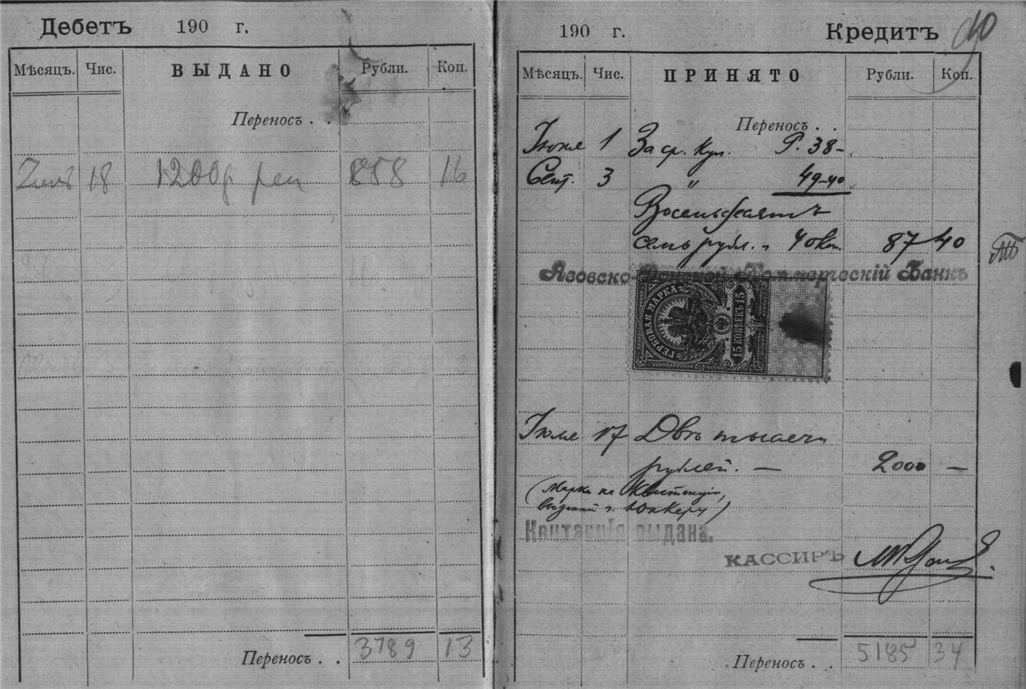 Дебетъ 190 г.
Мѣсяцъ. Чис. ВЫДАНО Рубли. Коп.
Переносъ . .
18 1200 858 16
3789 13
Переносъ . .
190 г. Кредитъ
Мѣсяцъ. Чис. ПРИНЯТО Рубли. Коп.
Переносъ . .
1 За ср. куп. Р. 38–
Сент. 3 " 49–40
Восемьдесятъ
семь рубл. 40 коп. 87 40
Азовско-Донской Коммерческій Банкъ
ГЕРБОВАЯ МАРКА
15 КОПѢЕКЪ 15
Іюле 17 Двѣ тысячи
рублей. — 2000 —
(Марка на квитанціи,
Юнкеру)
Квитанція выдана.
КАССИРЪ
5185 34
Переносъ . .